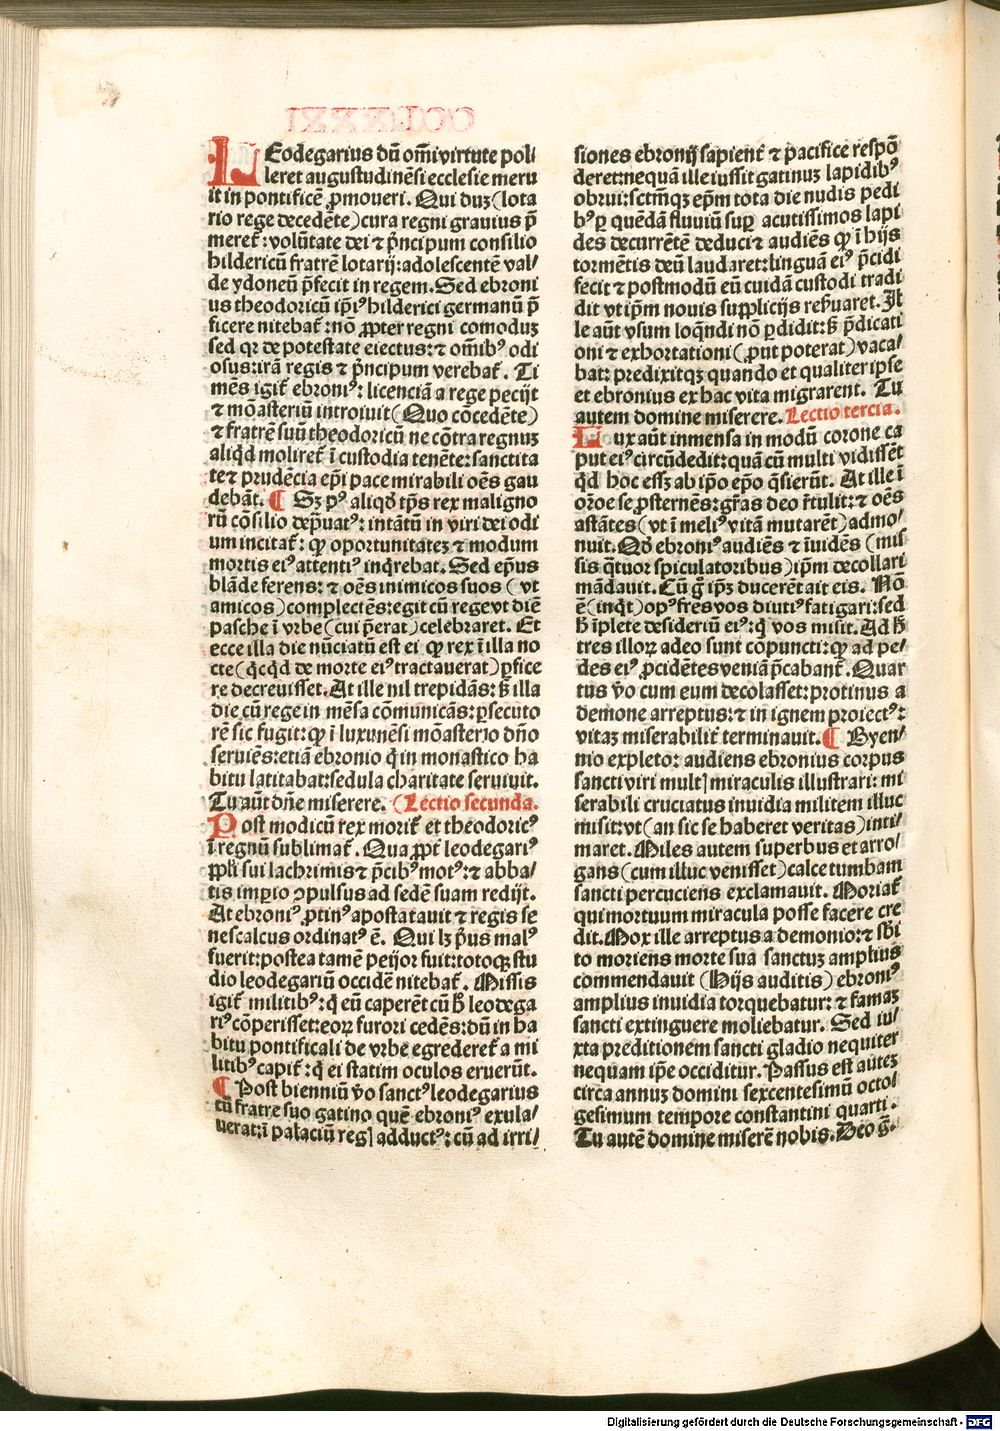 LEodegarius dū om̄i virtute pol/
leret augustudinēsi ecclesie meru
it in pontificē ꝓmoueri. Qui duꝫ (lota
rio rege decedēte) cura regni grauius p̄
meret᷑: volūtate dei ⁊ p̄ncipum consilio
hildericū fratrē lotarij: adolescentē val/
de ydoneū p̄fecit in regem. Sed ebroni
us theodoricū ip̄iꝰ hilderici germanū p̄
ficere nitebat᷑: nō ꝓpter regni comoduꝫ
sed qꝛ de potestate eiectus: ⁊ om̄ibꝰ odi
osus: irā regis ⁊ p̄ncipum verebat᷑. Ti
mēs igit᷑ ebroniꝰ: licenciā a rege pecijt
⁊ mōasteriū introiuit (Quo cōcedēte)
⁊ fratrē suū theodoricū ne cōtra regnuꝫ
aliqd̓ moliret᷑ ī custodia tenēte: sanctita
te ⁊ prudēcia ep̄i pace mirabili oēs gau
debāt. ¶ Sꝫ pꝰ aliqd̓ tp̄s rex maligno
rū cōsilio dep̄uatꝰ: intātū in viri dei odi
um incitat᷑: ꝙ oportunitateꝫ ⁊ modum
mortis eiꝰ attentiꝰ inq̇rebat. Sed ep̄us
blāde ferens: ⁊ oēs inimicos suos (vt
amicos) complectēs: egit cū rege vt diē
pasche ī vrbe (cui p̄erat) celebraret. Et
ecce illa die nūciatū est ei ꝙ rex ī illa no
cte (q̇cq̇d de morte eiꝰ tractauerat) ꝑfice
re decreuisset. At ille nil trepidās: sꝫ illa
die cū rege in mēsa cōmunicās: ꝑsecuto
rē sic fugit: ꝙ ī luxunēsi mōasterio dn̄o
seruiēs: etiā ebronio q̇ in monastico ha
bitu latitabat: sedula charitate seruiuit.
Tu aūt dn̄e miserere. (Lectio secunda.
Post modicū rex morit᷑ et theodoricꝰ
ī regnū sublimat᷑. Qua ꝓpt᷑ leodegariꝰ
ꝓpl̓i sui lachrimis ⁊ p̄cibꝰ motꝰ: ⁊ abba/
tis imꝑio ↄpulsus ad sedē suam redijt.
At ebroniꝰ ꝓtinꝰ apostatauit ⁊ regis se
nescalcus ordinatꝰ ē. Qui lꝫ p̄us malꝰ
fuerit: postea tamē peijor fuit: totoqꝫ stu
dio leodegariū occidē nitebat᷑. Missis
igit᷑ militibꝰ: q̇ eū caperēt cū h̓ leodega
riꝰ cōperisset: eoꝝ furori cedēs: dū in ha
bitu pontificali de vrbe egrederet᷑ a mi
litibꝰ capit᷑: q̇ ei statim oculos eruerūt.
¶ Post bienniū v̓o sanctꝰ leodegarius
cū fratre suo gatino quē ebroniꝰ exula/
uerat: ī palaciū regꝭ adductꝰ: cū ad irri/
siones ebronij sapient᷑ ⁊ pacifice respō
deret: nequā ille iussit gatinuꝫ lapidibꝰ
obrui: sctm̄qꝫ ep̄m tota die nudis pedi
bꝰ ꝑ quēdā fluuiū suꝑ acutissimos lapi
des decurrētē deduci ⁊ audiēs ꝙ ī hijs
tormētis deū laudaret: linguā eiꝰ p̄cidi
fecit ⁊ postmodū eū cuidā custodi tradi
dit vt ip̄m nouis supplicijs rep̄uaret. Il
le aūt vsum loq̄ndi nō ꝑdidit: sꝫ p̄dicati
oni ⁊ exhortationi (ꝓut poterat) vaca/
bat: predixitqꝫ quando et qualiter ipse
et ebronius ex hac vita migrarent. Tu
autem domine miserere. Lectio tercia.
Lux aūt inmensa in modū corone ca
put eiꝰ circūdedit: quā cū multi vidissēt
q̇d hoc essꝫ ab ip̄o ep̄o q̄sierūt. At ille ī
or̄one se ꝓsternēs: gr̄as deo r̄tulit: ⁊ oēs
astātes (vt ī meliꝰ vitā mutarēt) admo/
nuit. Qd̓ ebroniꝰ audiēs ⁊ īuidēs (mis
sis q̄tuor spiculatoribus) ip̄m decollari
mādauit. Cū g̊ ip̄ꝫ ducerēt ait eis. Nō
ē (inq̇t) opꝰ fres vos diutiꝰ fatigari: sed
h̓ īplete desideriū eiꝰ: q̇ vos misit. Ad h̓
tres illoꝝ adeo sunt cōpuncti: ꝙ ad pe/
des eiꝰ ꝓcidētes veniā p̄cabant᷑. Quar
tus v̓o cum eum decolasset: protinus a
demone arreptus: ⁊ in ignem proiectꝰ:
vitaꝫ miserabilit᷑ terminauit. ¶ Byen/
nio expleto: audiens ebronius corpus
sancti viri multꝭ miraculis illustrari: mi
serabili cruciatus inuidia militem illuc
misit: vt (an sic se haberet veritas) inti/
maret. Miles autem superbus et arro/
gans (cum illuc venisset) calce tumbam
sancti percuciens exclamauit. Moriat᷑
qui mortuum miracula posse facere cre
dit. Mox ille arreptus a demonio: ⁊ sb̓i
to moriens morte sua sanctuꝫ amplius
commendauit (Hijs auditis) ebroniꝰ
amplius inuidia torquebatur: ⁊ famaꝫ
sancti extinguere moliebatur. Sed iu/
xta preditionem sancti gladio nequiter
nequam ip̄e occiditur. Passus est auteꝫ
circa annuꝫ domini sexcentesimū octo/
gesimum tempore constantini quarti.
Tu autē domine miserē nobis. Deo g̅.
Digitalisierung gefördert durch die Deutsche Forschungsgemeinschaft - DFG